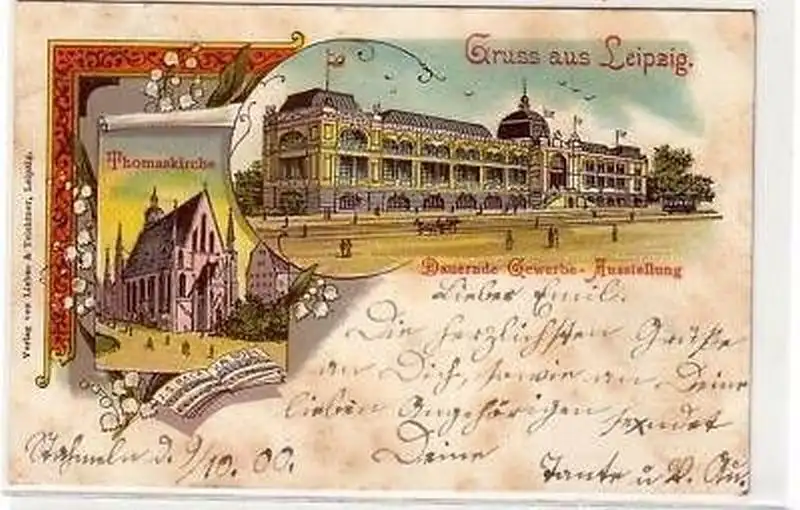 Gruss aus Leipzig.
Thomaskirche
Dauernde Gewerbe-Ausstellung
Verlag von Teichner, Leipzig.
Lieber Emil.
Die herzlichsten Grüße
an Dich, sowie an Deine
lieben Angehörigen sendet
Deine
Tante u.
Stahmeln d. 9/10. 00.